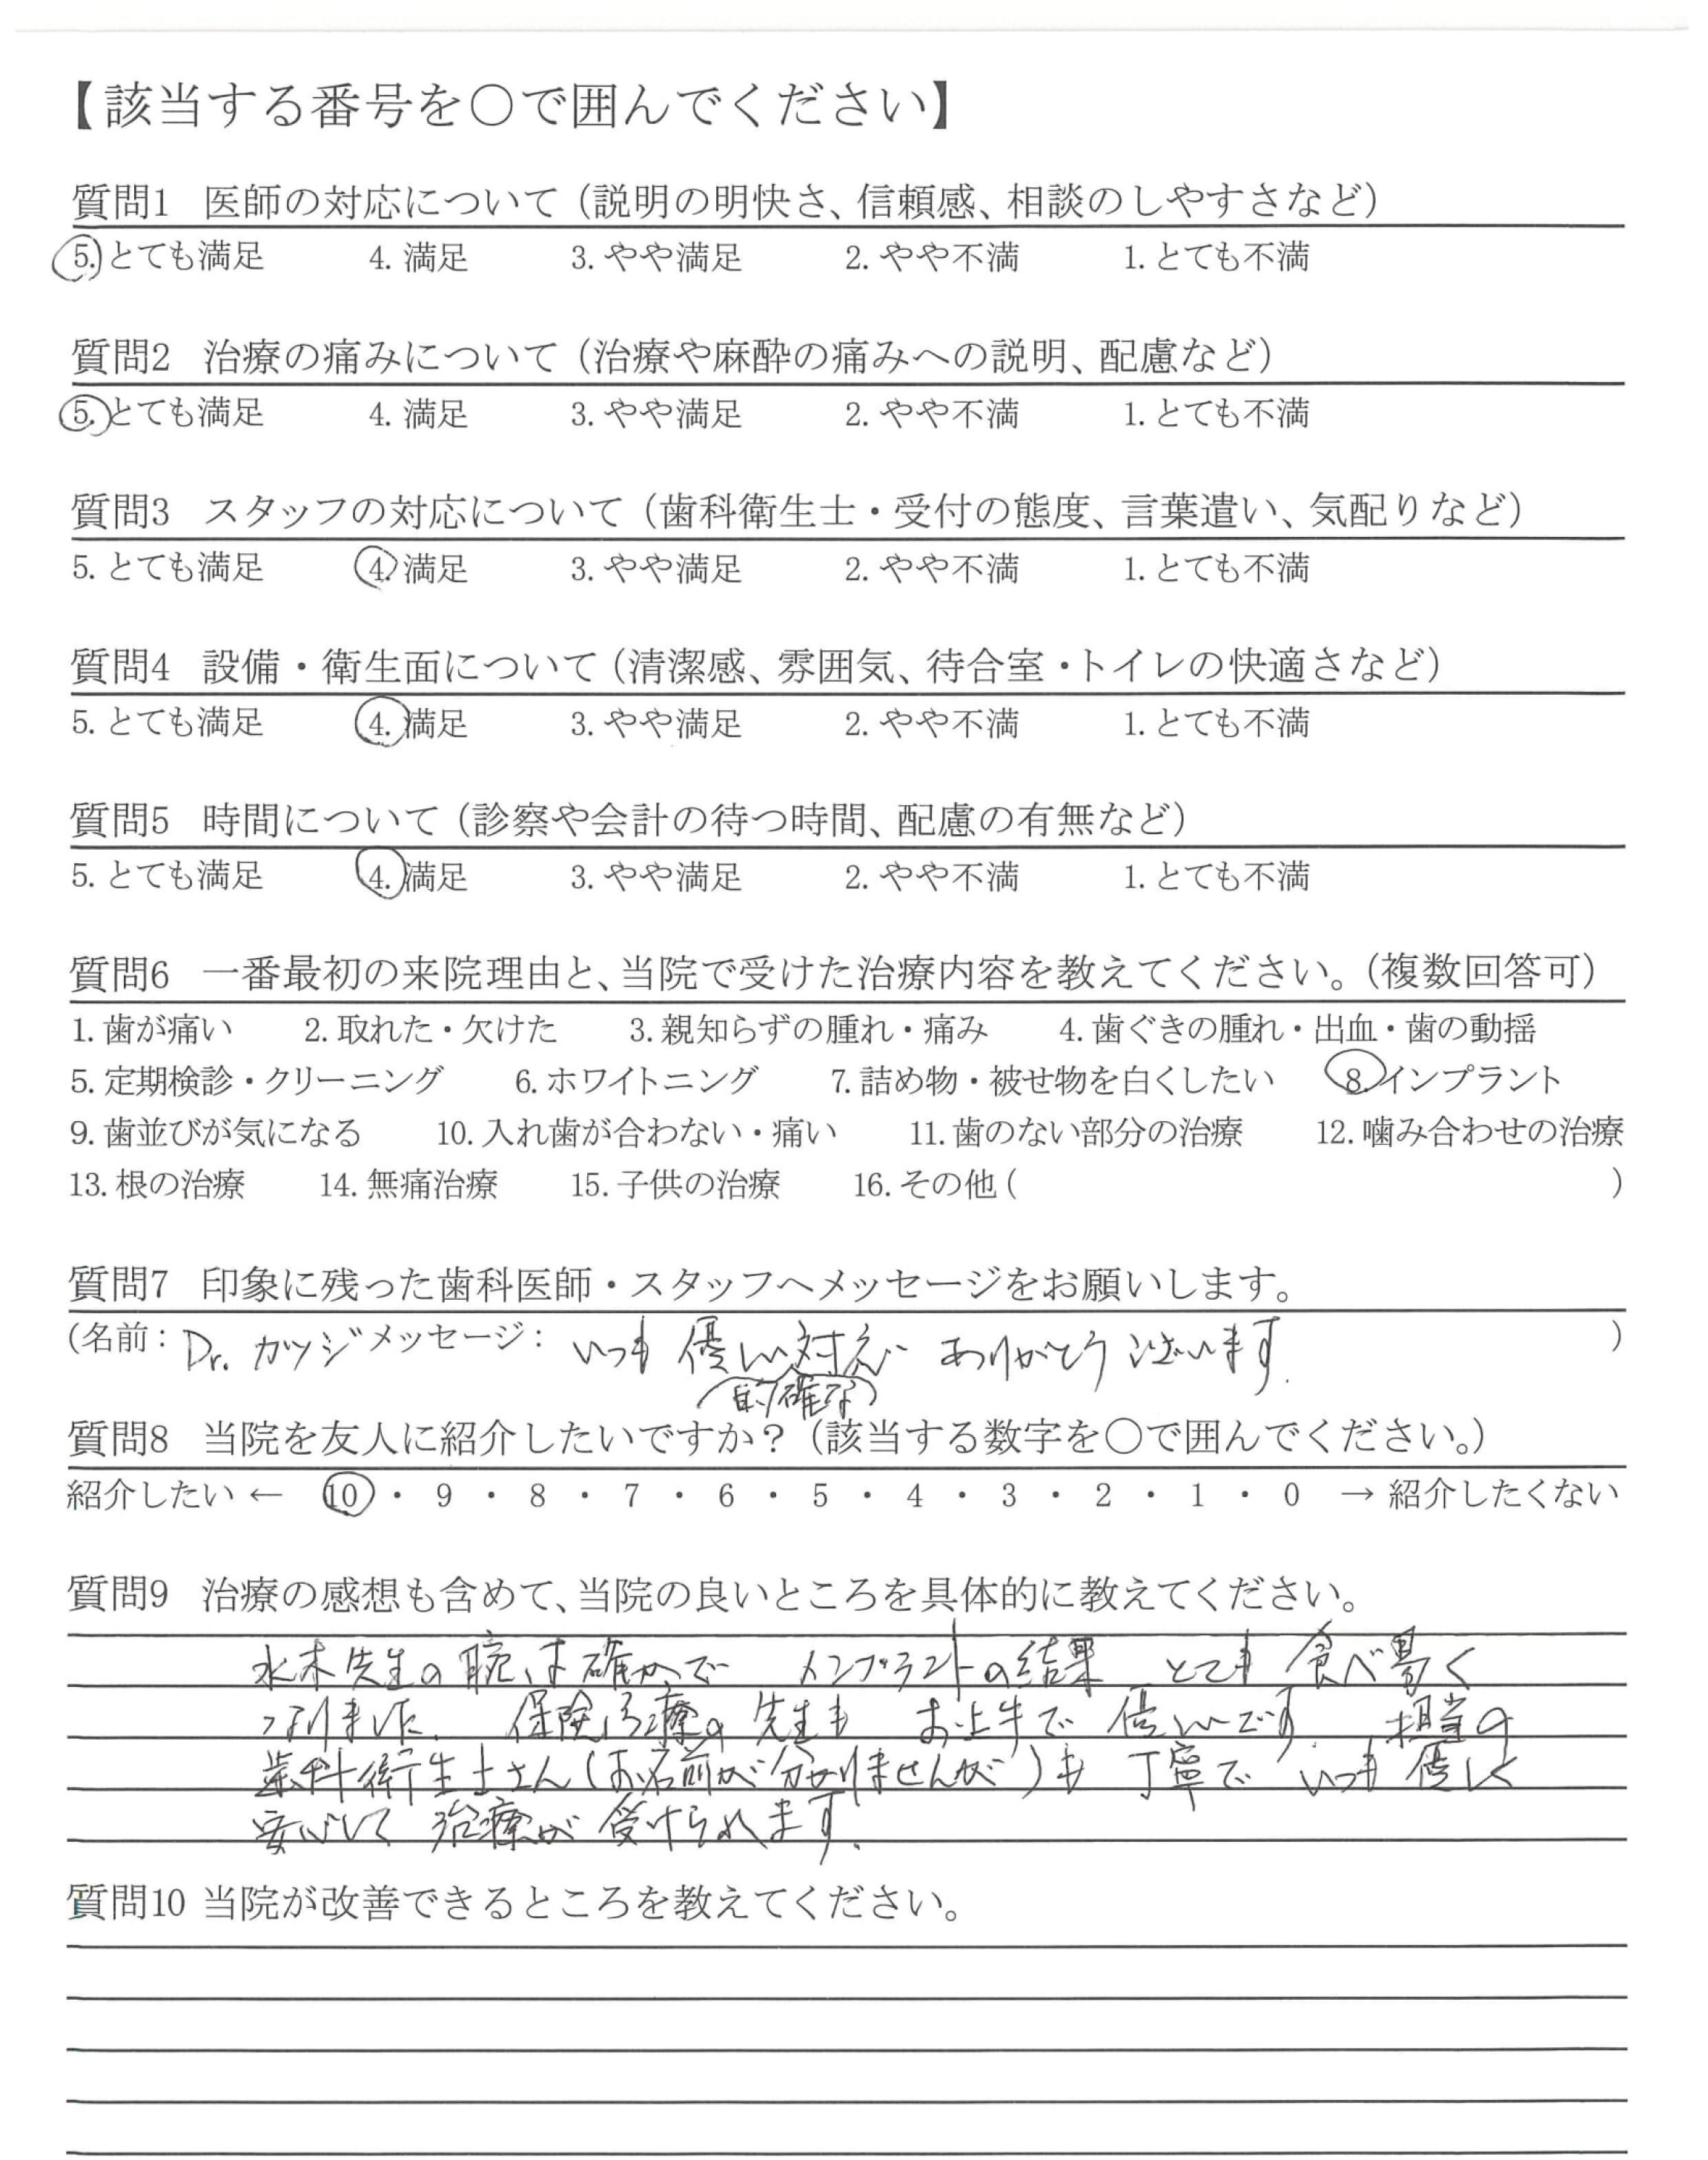 【該当する番号を○で囲んでください】
質問1 医師の対応について（説明の明快さ、信頼感、相談のしやすさなど）
5. とても満足 4. 満足 3. やや満足 2. やや不満 1. とても不満
質問2 治療の痛みについて（治療や麻酔の痛みへの説明、配慮など）
5. とても満足 4. 満足 3. やや満足 2. やや不満 1. とても不満
質問3 スタッフの対応について（歯科衛生士・受付の態度、言葉遣い、気配りなど）
5. とても満足 4. 満足 3. やや満足 2. やや不満 1. とても不満
質問4 設備・衛生面について（清潔感、雰囲気、待合室・トイレの快適さなど）
5. とても満足 4. 満足 3. やや満足 2. やや不満 1. とても不満
質問5 時間について（診察や会計の待つ時間、配慮の有無など）
5. とても満足 4. 満足 3. やや満足 2. やや不満 1. とても不満
質問6 一番最初の来院理由と、当院で受けた治療内容を教えてください。（複数回答可）
1. 歯が痛い 2. 取れた・欠けた 3. 親知らずの腫れ・痛み 4. 歯ぐきの腫れ・出血・歯の動揺
5. 定期検診・クリーニング 6. ホワイトニング 7. 詰め物・被せ物を白くしたい 8. インプラント
9. 歯並びが気になる 10. 入れ歯が合わない・痛い 11. 歯のない部分の治療 12. 噛み合わせの治療
13. 根の治療 14. 無痛治療 15. 子供の治療 16. その他 ( )
質問7 印象に残った歯科医師・スタッフへメッセージをお願いします。
(名前： Dr. カツジ メッセージ： いつも 優しい対応 ありがとうございます. )
(的確な)
質問8 当院を友人に紹介したいですか？（該当する数字を○で囲んでください。）
紹介したい ← 10 ・ 9 ・ 8 ・ 7 ・ 6 ・ 5 ・ 4 ・ 3 ・ 2 ・ 1 ・ 0 → 紹介したくない
質問9 治療の感想も含めて、当院の良いところを具体的に教えてください。
水木先生の腕は確かで インプラントの結果 とても 食べ易く
なりました. 保険治療の先生も お上手で 優しいです 担当の
歯科衛生士さん(お名前が分かりませんが)も 丁寧で いつも 優しく
安心して 治療が 受けられます.
質問10 当院が改善できるところを教えてください。